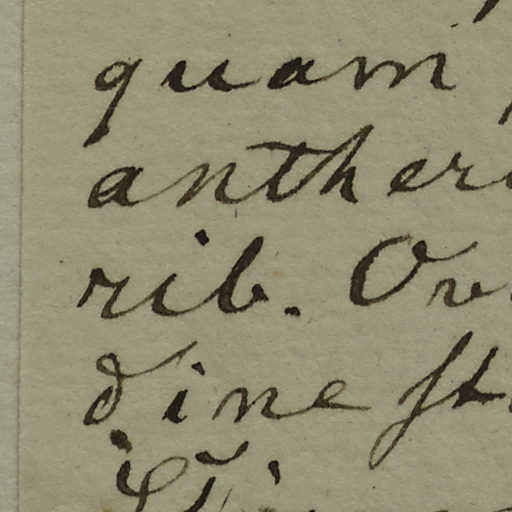 quam
anther
rib. Ov
dine st